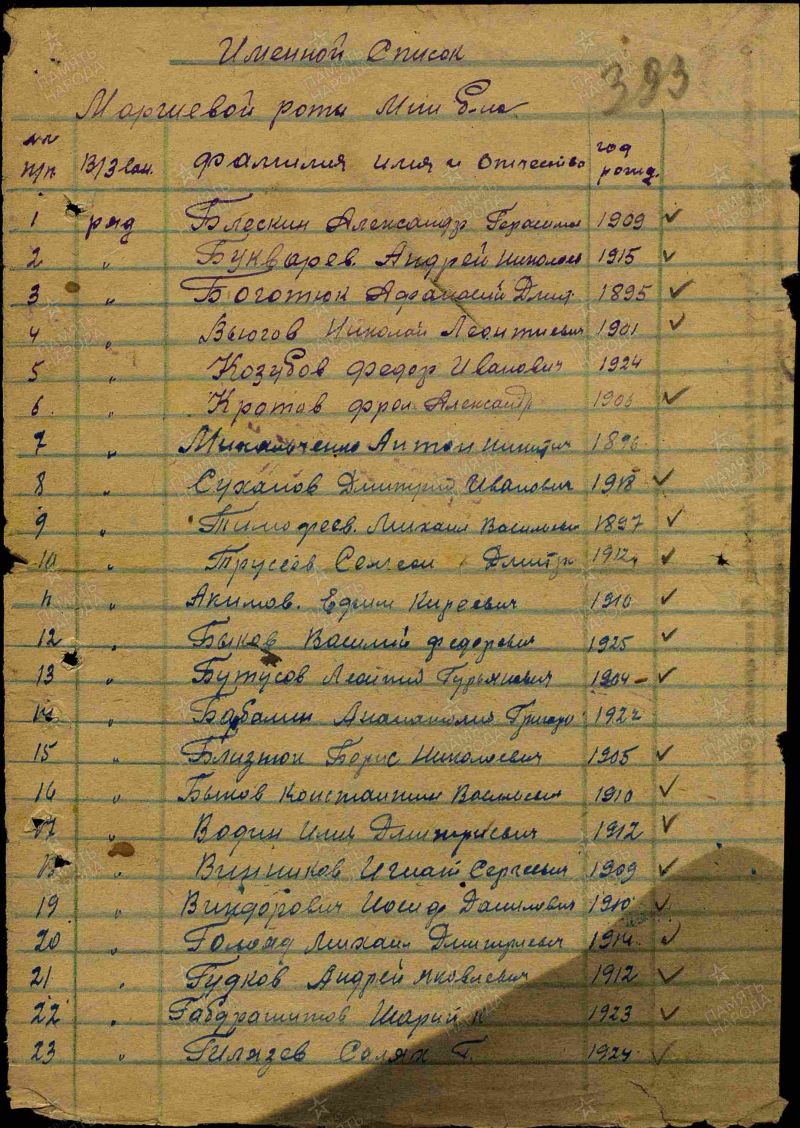 Именной Список
393
Маршевой роты
№№ п/п В/Зван. фамилия имя и отчество год рожд.
1 ряд Блескин Александр Герасимов 1909 ✓
2 " Букварев. Андрей Николаев 1915 ✓
3 " Боготюк Афанасий Дмит 1895 ✓
4 " Вьюгов Николай Леонтиевич 1901 ✓
5 " Козубов Федор Иванович 1924
6. " Кротов Фрол Александ 1906 ✓
7 " Михальченко Антон Никитич 1896
8 " Суханов Дмитрий Иванович 1918 ✓
9 " Тимофеев. Михаил Васильевич 1897 ✓
10 " Трусеев Семен Дмитр 1912 ✓
11 " Акимов. Ефим Киреевич 1910 ✓
12 " Быков Василий Федорович 1925 ✓
13 " Бутусов Леонтий Гурьянович 1904 – ✓
14 " Бабалин Григорь 192
15 " Близнюк Борис Николаевич 1905 ✓
16 " Бытов Константин Васильевич 1910 ✓
17 " Водин Илья Дмитриевич 1912 ✓
18 " Винников Игнат Сергеевич 1909 ✓
19 " Виндорович Иосиф Данилович 1910 ✓
20 " Голожд Михаил Дмитриевич 1914 ✓
21 " Гудков Андрей Яковлевич 1912 ✓
22 " Габдрашитов Шарий К 1923 ✓
23 " Гилязев Салях Г. 1924 ✓
ПАМЯТЬ НАРОДА